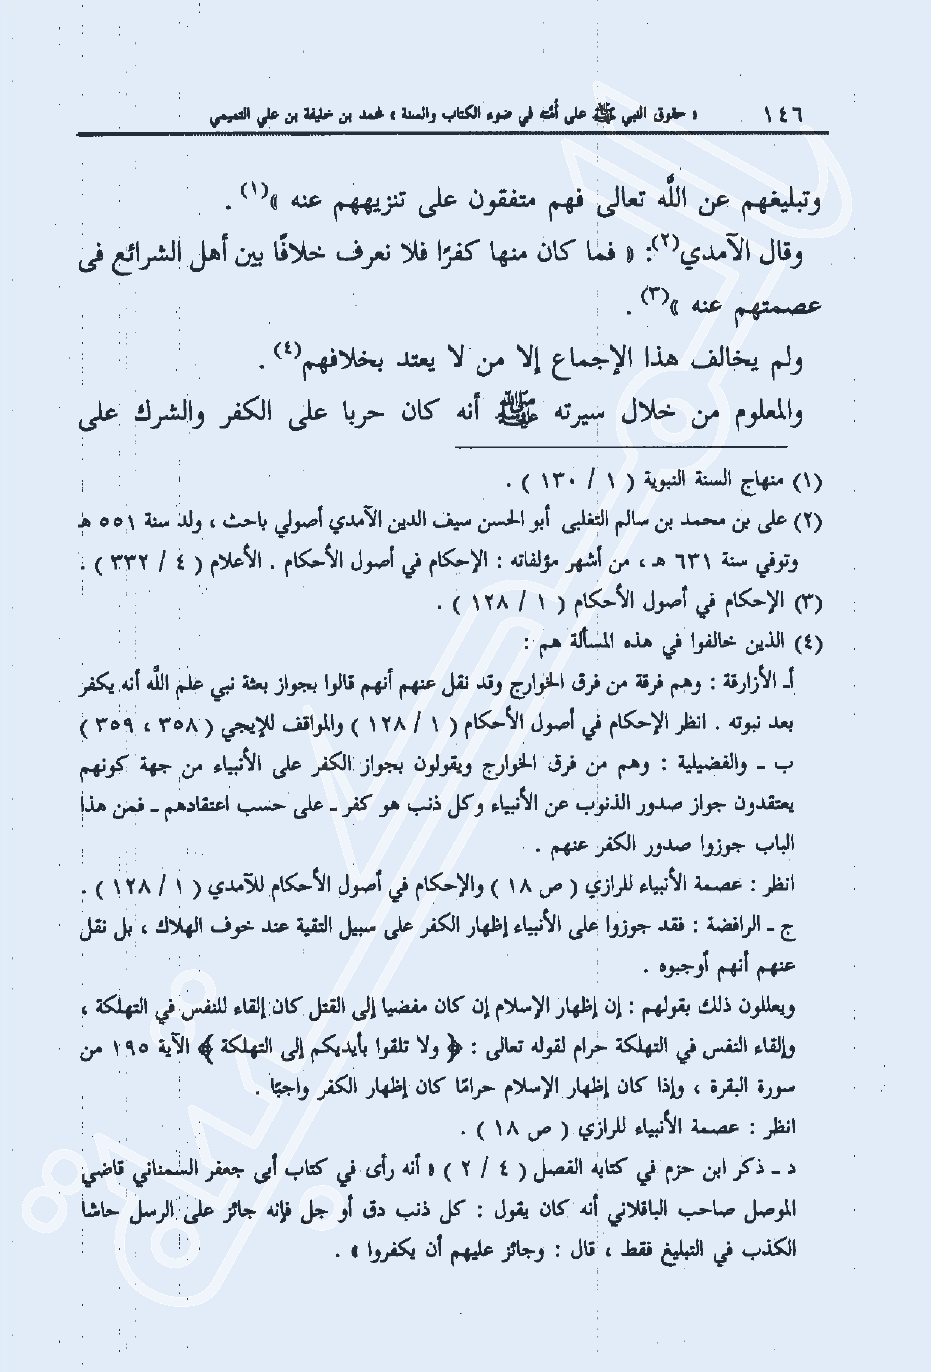 ١٤٦ « حقوق النبي ﷺ على أمته في ضوء الكتاب والسنة » محمد بن خليفة بن علي التميمي
وتبليغهم عن اللَّه تعالى فهم متفقون على تنزيههم عنه »(١) .
وقال الآمدي(٢): « فما كان منها كفرًا فلا نعرف خلافًا بين أهل الشرائع فى
عصمتهم عنه »(٣) .
ولم يخالف هذا الإجماع إلا من لا يعتد بخلافهم(٤) .
والمعلوم من خلال سيرته ﷺ أنه كان حربا على الكفر والشرك على
(١) منهاج السنة النبوية ( ١ / ١٣٠ ) .
(٢) على بن محمد بن سالم التغلبى أبو الحسن سيف الدين الآمدي أصولي باحث ، ولد سنة ٥٥١ هـ
وتوفي سنة ٦٣١ هـ ، من أشهر مؤلفاته : الإحكام في أصول الأحكام . الأعلام ( ٤ / ٣٣٢ ) .
(٣) الإحكام في أصول الأحكام ( ١ / ١٢٨ ) .
(٤) الذين خالفوا في هذه المسألة هم :
أـ الأزارقة : وهم فرقة من فرق الخوارج وقد نقل عنهم أنهم قالوا بجواز بعثة نبي علم اللَّه أنه يكفر
بعد نبوته . انظر الإحكام في أصول الأحكام ( ١ / ١٢٨ ) والمواقف للإيجي ( ٣٥٨ ، ٣٥٩ )
ب ـ والفضيلية : وهم من فرق الخوارج ويقولون بجواز الكفر على الأنبياء من جهة كونهم
يعتقدون جواز صدور الذنوب عن الأنبياء وكل ذنب هو كفر ـ على حسب اعتقادهم ـ فمن هذا
الباب جوزوا صدور الكفر عنهم .
انظر : عصمة الأنبياء للرازي ( ص ١٨ ) والإحكام في أصول الأحكام للآمدي ( ١ / ١٢٨ ) .
ج ـ الرافضة : فقد جوزوا على الأنبياء إظهار الكفر على سبيل التقية عند خوف الهلاك ، بل نقل
عنهم أنهم أوجبوه .
ويعللون ذلك بقولهم : إن إظهار الإسلام إن كان مفضيا إلى القتل كان إلقاء للنفس في التهلكة ،
وإلقاء النفس في التهلكة حرام لقوله تعالى : ﴿ ولا تلقوا بأيديكم إلى التهلكة ﴾ الآية ١٩٥ من
سورة البقرة ، وإذا كان إظهار الإسلام حرامًا كان إظهار الكفر واجبًا .
انظر : عصمة الأنبياء للرازي ( ص ١٨ ) .
د ـ ذكر ابن حزم في كتابه الفصل ( ٤ / ٢ ) « أنه رأى في كتاب أبى جعفر السمناني قاضي
الموصل صاحب الباقلاني أنه كان يقول : كل ذنب دق أو جل فإنه جائز على الرسل حاشا
الكذب في التبليغ فقط ، قال : وجائز عليهم أن يكفروا » .